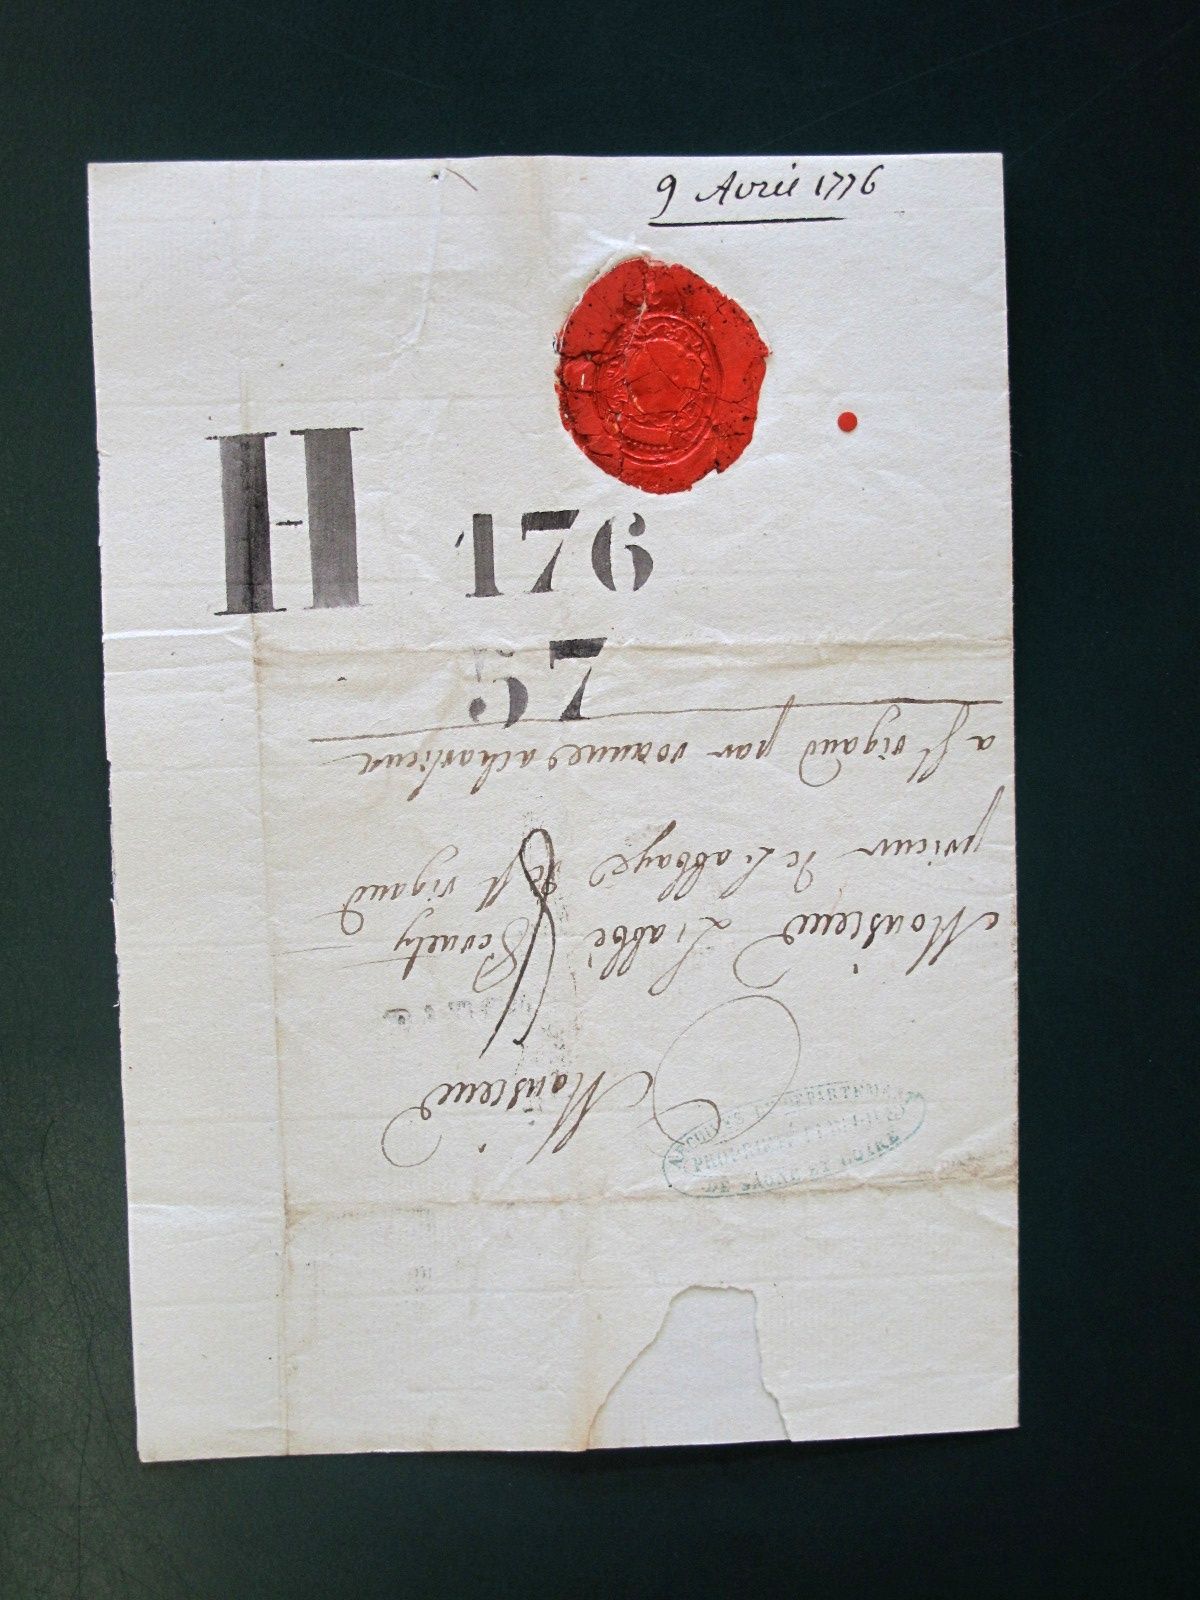 9 Avril 1776
H 176
57
Monsieur
Monsieur L'abbé
prieur de L'abbaye de st rigaud
a st rigaud par roanne a charlieux
ARCHIVES DU DÉPARTEMENT
PROPRIÉTÉ PUBLIQUE
DE SAÔNE ET LOIRE